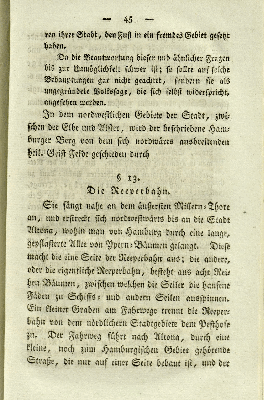 — 45 —
von ihrer Stadt, den Fuß in ein fremdes Gebiet gesetzt
haben.
Da die Beantwortung dieser und ähnlicher Fragen
bis zur Unmöglichkeit schwer ist; so sollte auf solche
Behauptungen gar nicht geachtet, sondern sie als
ungegründete Volkssage, die sich selbst widerspricht,
angesehen werden.
In dem nordwestlichen Gebiete der Stadt, zwi-
schen der Elbe und Alster, wird der beschriebene Ham-
burger Berg von dem sich nordwärts ausbreitenden
heil. Geist Felde geschieden durch
§ 13.
Die Reeperbahn.
Sie fängt nahe an dem äußersten Millern-Thore
an, und erstreckt sich nordwestwärts bis an die Stadt
Altona, wohin man von Hamburg durch eine lange,
gepflasterte Allee von Ypern-Bäumen gelangt. Diese
macht die eine Seite der Reeperbahn aus; die andere,
oder die eigentliche Reeperbahn, besteht aus acht Rei-
hen Bäumen, zwischen welchen die Seiler die hanfene
Fäden zu Schiffs- und andern Seilen ausspinnen.
Ein kleiner Graben am Fahrwege trennt die Reeper-
bahn von dem nördlichern Stadtgebiete dem Pesthofe
zu. Der Fahrweg führt nach Altona, durch eine
kleine, noch zum Hamburgischen Gebiet gehörende
Straße, die nur auf einer Seite bebaut ist, und der